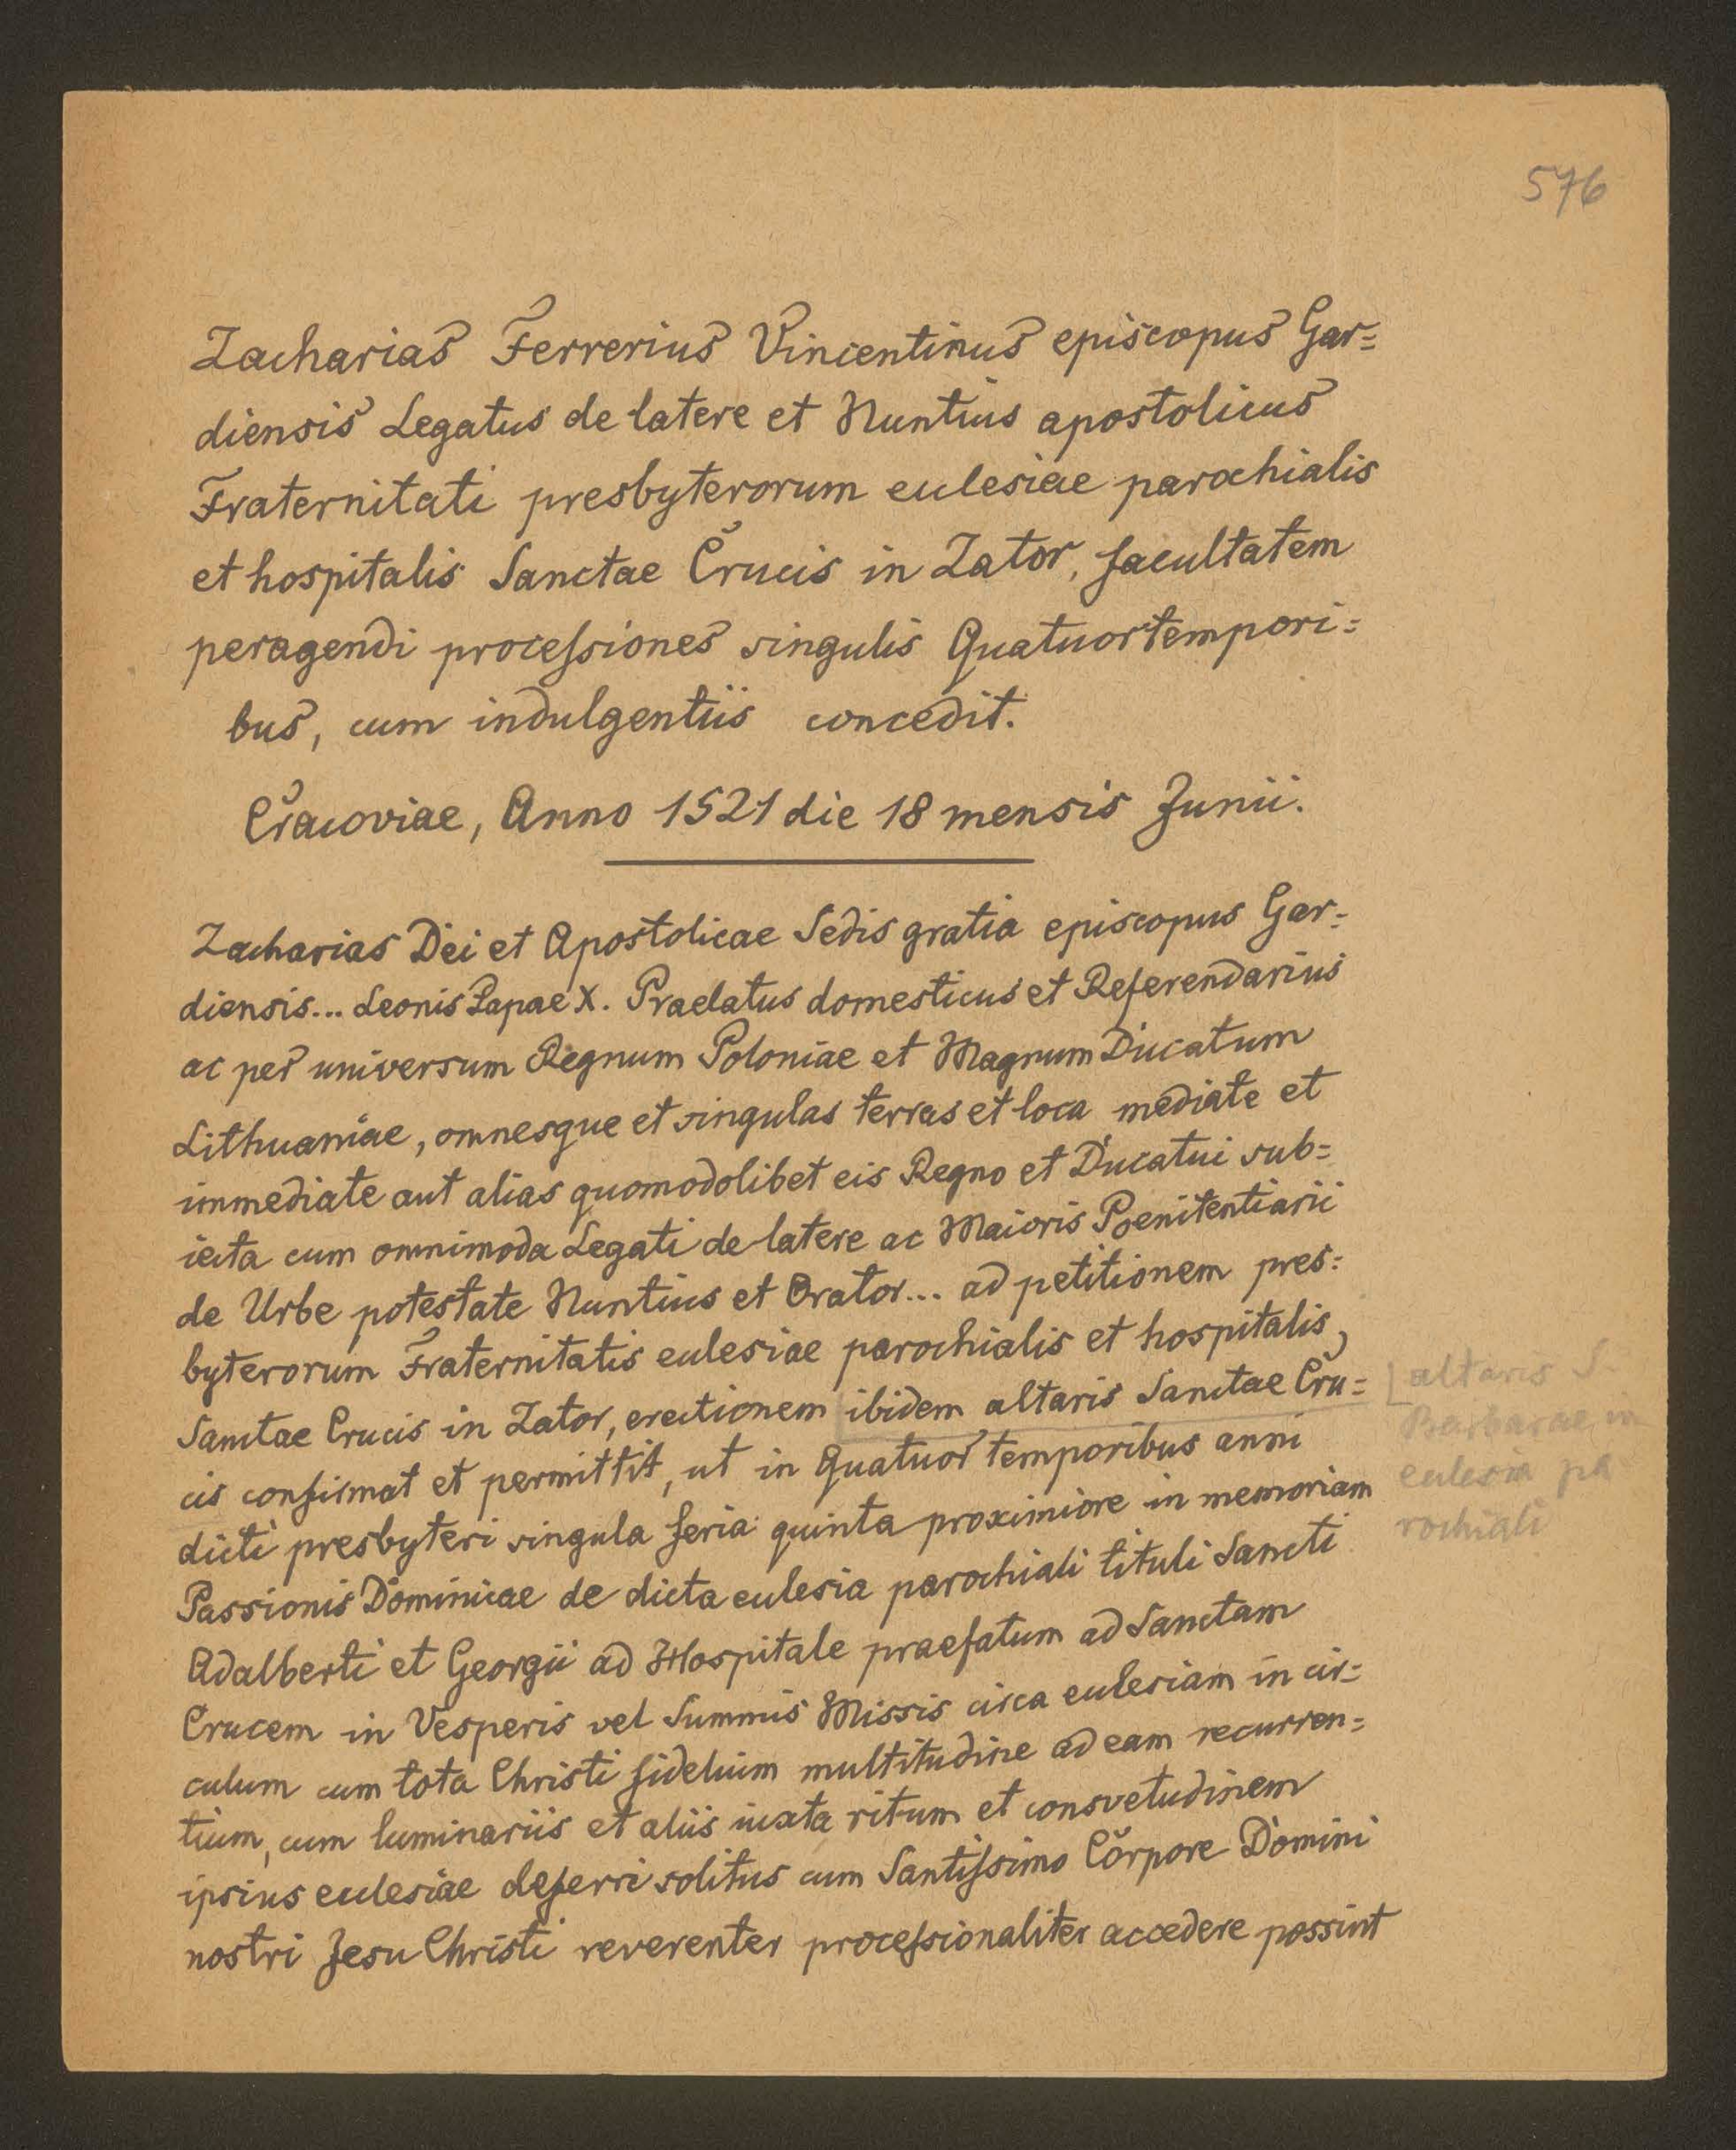 576
Zacharias Ferrerius Vincentinus episcopus Gar=
diensis Legatus de latere et Nuntius apostolicus
Fraternitati presbyterorum ecclesiae parochialis
et hospitalis Sanctae Crucis in Zator, facultatem
peragendi processiones singulis Quatuortempori=
bus, cum indulgentiis concedit.
Cracoviae, Anno 1521 die 18 mensis Junii.
Zacharias Dei et Apostolicae Sedis gratia episcopus Gar=
diensis... Leonis Papae X. Praelatus domesticus et Referendarius
ac per universum Regnum Poloniae et Magnum Ducatum
Lithuaniae, omnesque et singulas terras et loca mediate et
immediate aut alias quomodolibet eis Regno et Ducatui sub=
iecta cum omnimoda Legati de latere ac Maioris Poenitentiarii
de Urbe potestate Nuntius et Orator... ad petitionem pres=
byterorum Fraternitatis ecclesiae parochialis et hospitalis
Sanctae Crucis in Zator, erectionem ibidem altaris Sanctae Cru=
cis confirmat et permittit, ut in Quatuor temporibus anni
dicti presbyteri singula feria quinta proximiore in memoriam
Passionis Dominicae de dicta ecclesia parochiali tituli Sancti
Adalberti et Georgii ad Hospitale praefatum ad Sanctam
Crucem in Vesperis vel Summis Missis circa ecclesiam in cir=
culum cum tota Christi fidelium multitudine ad eam recurren=
tium, cum luminariis et aliis iuxta ritum et consvetudinem
ipsius ecclesiae deferri solitus cum Santissimo Corpore Domini
nostri Jesu Christi reverenter processionaliter accedere possint
altaris S.
Barbarae in
ecclesia pa
rochiali